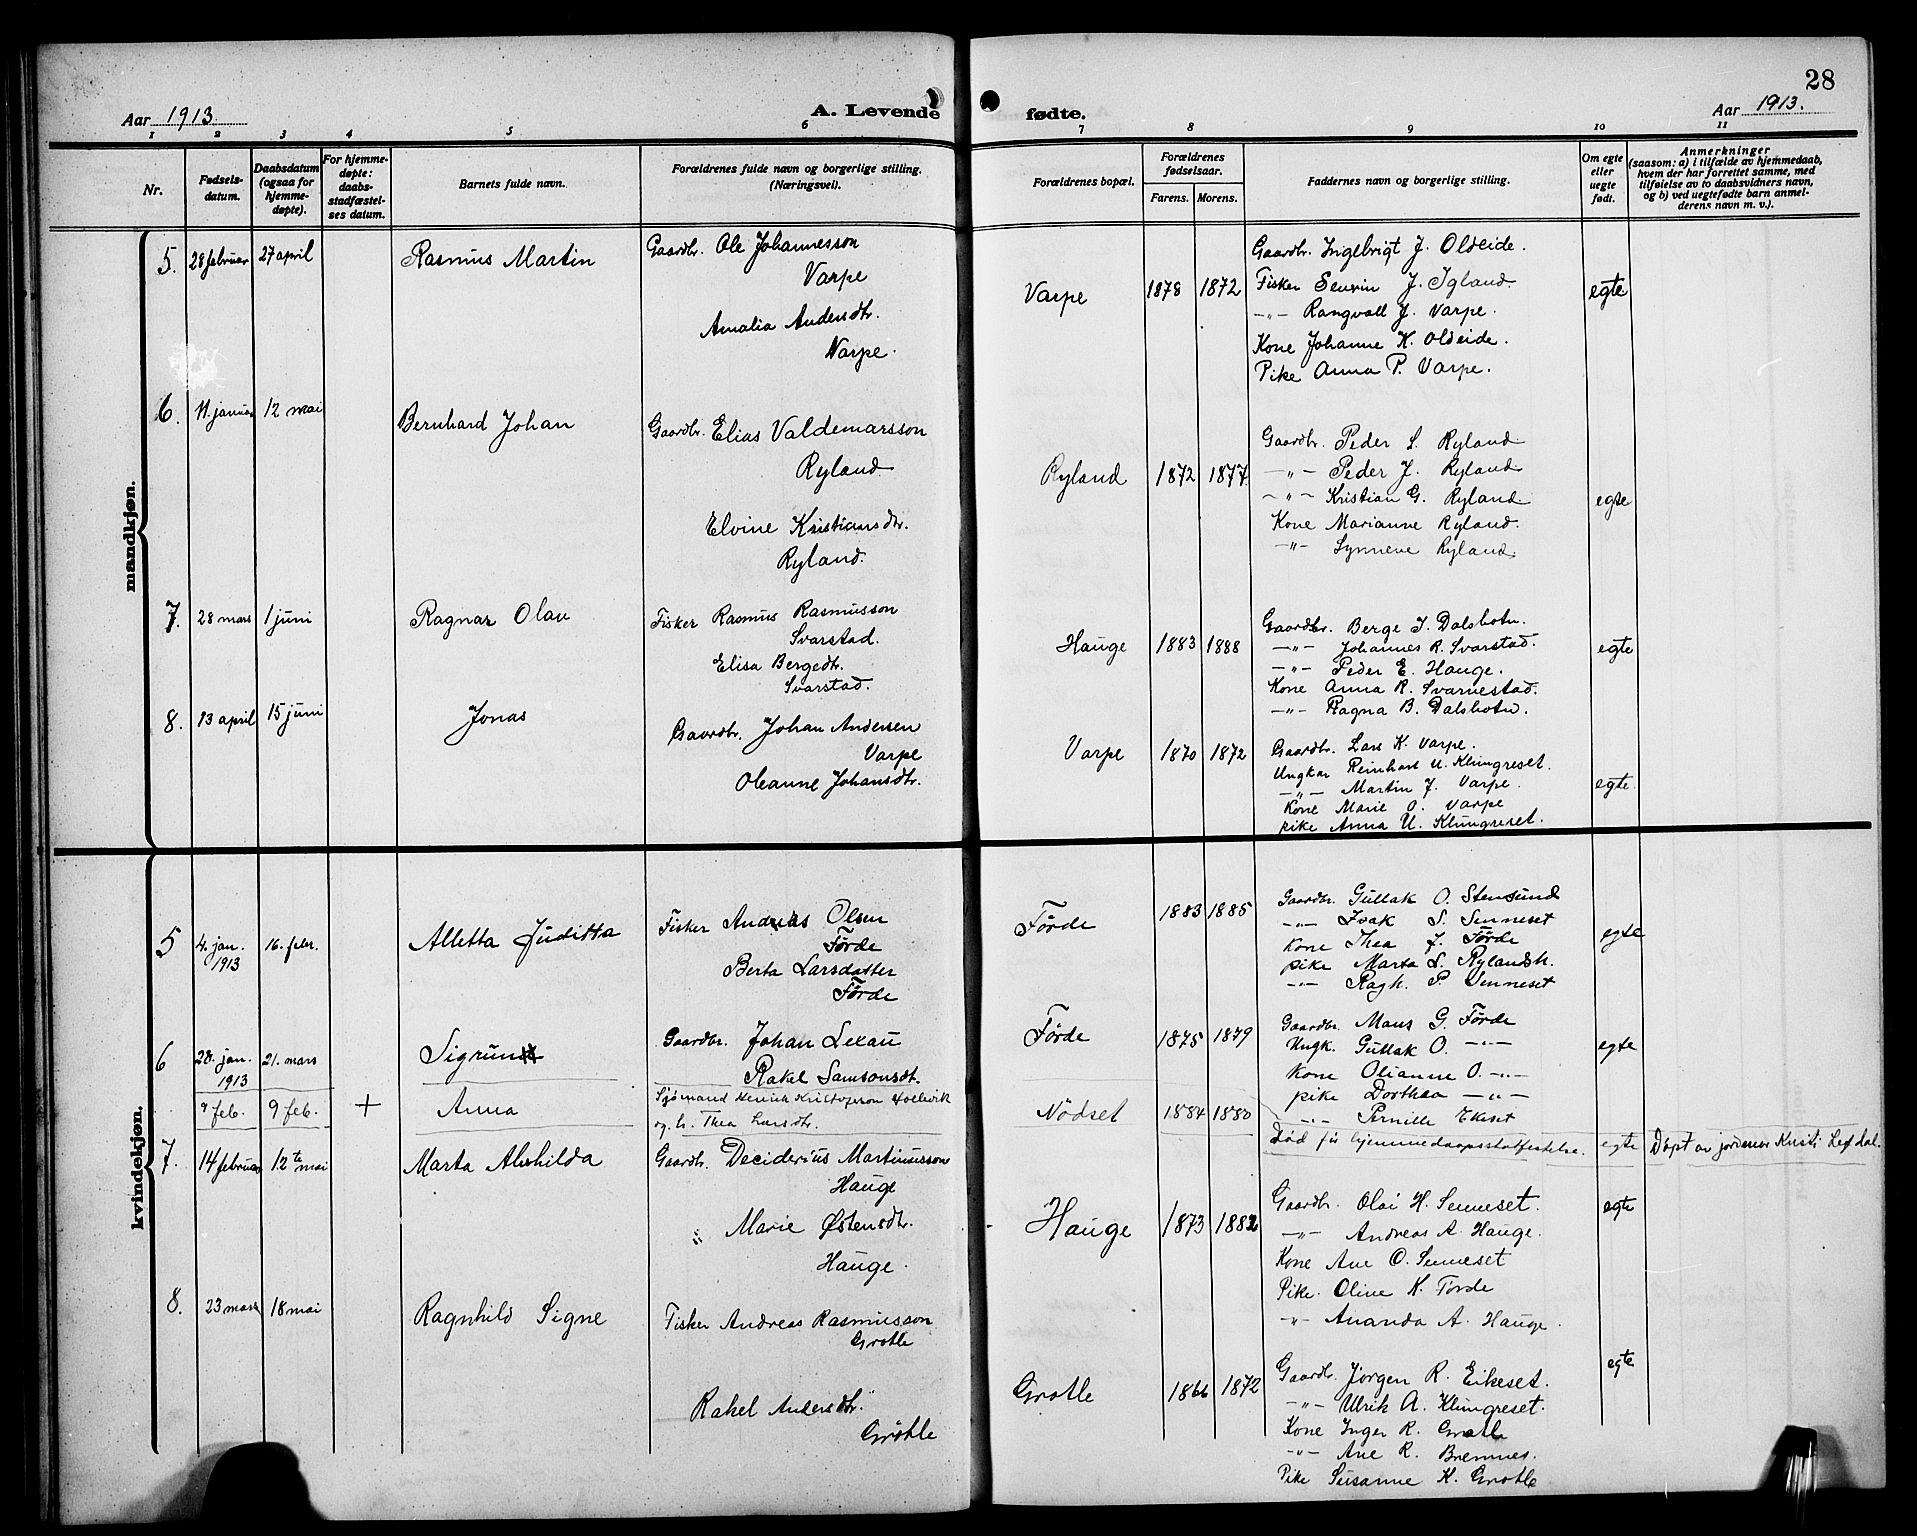 28
Aar 1913. A. Levende fødte. Aar 1913.
1 2 3 4 5 6 7 8 9 10 11
Nr.
Fødsels-
datum.
Daabsdatum
(ogsaa for
hjemme-
døpte).
For hjemme-
døpte:
daabs-
stadfæstel-
ses datum.
Barnets fulde navn.
Forældrenes fulde navn og borgerlige stilling.
(Næringsvei).
Forældrenes bopæl.
Forældrenes
fødselsaar.
Farens. Morens.
Faddernes navn og borgerlige stilling.
Om egte
eller
uegte
født.
Anmerkninger
(saasom: a) i tilfælde av hjemmedaab,
hvem der har forrettet samme, med
tilføielse av to daabsvidners navn,
og b) ved uegtefødte barn anmel-
derens navn m. v.).
mandkjøn.
5. 28 februar 27 april Rasmus Martin
Gaardbr. Ole Johannesson
Varpe
Amalia Andersdtr.
Varpe.
Varpe 1878 1872
Gaardbr. Ingebrigt J. Oldeide.
Fisker Sevrin J. Igland.
-"- Rangvall J. Varpe.
Kone Johanne K. Oldeide.
Pike Anna P. Varpe.
egte
6. 11. januar 12 mai Bernhard Johan
Gaardbr. Elias Valdemarsson
Ryland
Elvine Kristiansdtr.
Ryland.
Ryland 1872 1877
Gaardbr. Peder S. Ryland
-"- Peder J. Ryland
-"- Kristian G. Ryland
Kone Marianne Ryland.
-"- Synneve Ryland
egte
7. 28 mars 1 juni Ragnar Olav
Fisker Rasmus Rasmusson
Svarstad.
Elisa Bergedtr.
Svarstad.
Hauge 1883 1888
Gaardbr. Berge I. Dalsbotn.
-"- Johannes R. Svarstad.
-"- Peder E. Hauge.
Kone Anna R. Svarnestad.
-"- Ragna B. Dalsbotn.
egte
8. 13 april 15 juni Jonas
Gaardbr. Johan Andersen
Varpe
Oleanne Johansdtr.
Varpe 1870 1872
Gaardbr. Lars K. Varpe.
Ungkar Reinhart U. Klungreset.
-"- Martin J. Varpe.
Kone Marie O. Varpe
pike Anna U. Klungreset.
egte
kvindekjøn.
5 4. jan. 1913 16. febr. Alletta Juditta
Fisker Andreas Olsen
Förde
Berta Larsdatter
Förde
Förde 1883 1885
Gaardbr. Gullak O. Stensund
-"- Ivak S. Senneset
Kone Thea J. Förde
pike Marta L. Rylandsh.
-"- Ragh. P. Senneset
egte
6 28. jan. 1913 21. mars Sigrun
Gaardbr. Johan Lexau
Rakel Samsonsdt.
Förde 1875 1879
Gaardbr. Mons G. Förde
Ungk. Gullak O. -"-
Kone Olianne O. -"-
pike Dorthea -"-
-"- Pernille Ekset
egte
9 feb. 9 feb. + Anna
Sjømand Henrik Kristoferson
og h. Thea Larsdtr.
Nödset 1884 1880
Död för hjemmedaapsstatfestelse. egte Döpt av jordmor Kristi Lefdal.
7. 14 februar 12te mai Marta Alvhilda
Gaardbr. Deciderius Martinusson
Hauge
" Marie Østensdtr.
Hauge.
Hauge 1873 1882
Gaardbr. Olai H. Senneset.
-"- Andreas A. Hauge.
Kone Ane O. Senneset
Pike. Oline K. Förde
-"- Ananda A. Hauge.
egte
8. 23 mars 18 mai Ragnhild Signe
Fisker Andreas Rasmusson
Grotle
Rakel Andersdtr.
Grotle
Grotle 1866 1872
Gaardbr. Jörgen R. Eikeset.
-"- Ulrik A. Klungreset.
Kone Inger R. Grotle
-"- Ane R. Bremnes.
Pike Susanne K. Grotle
egte